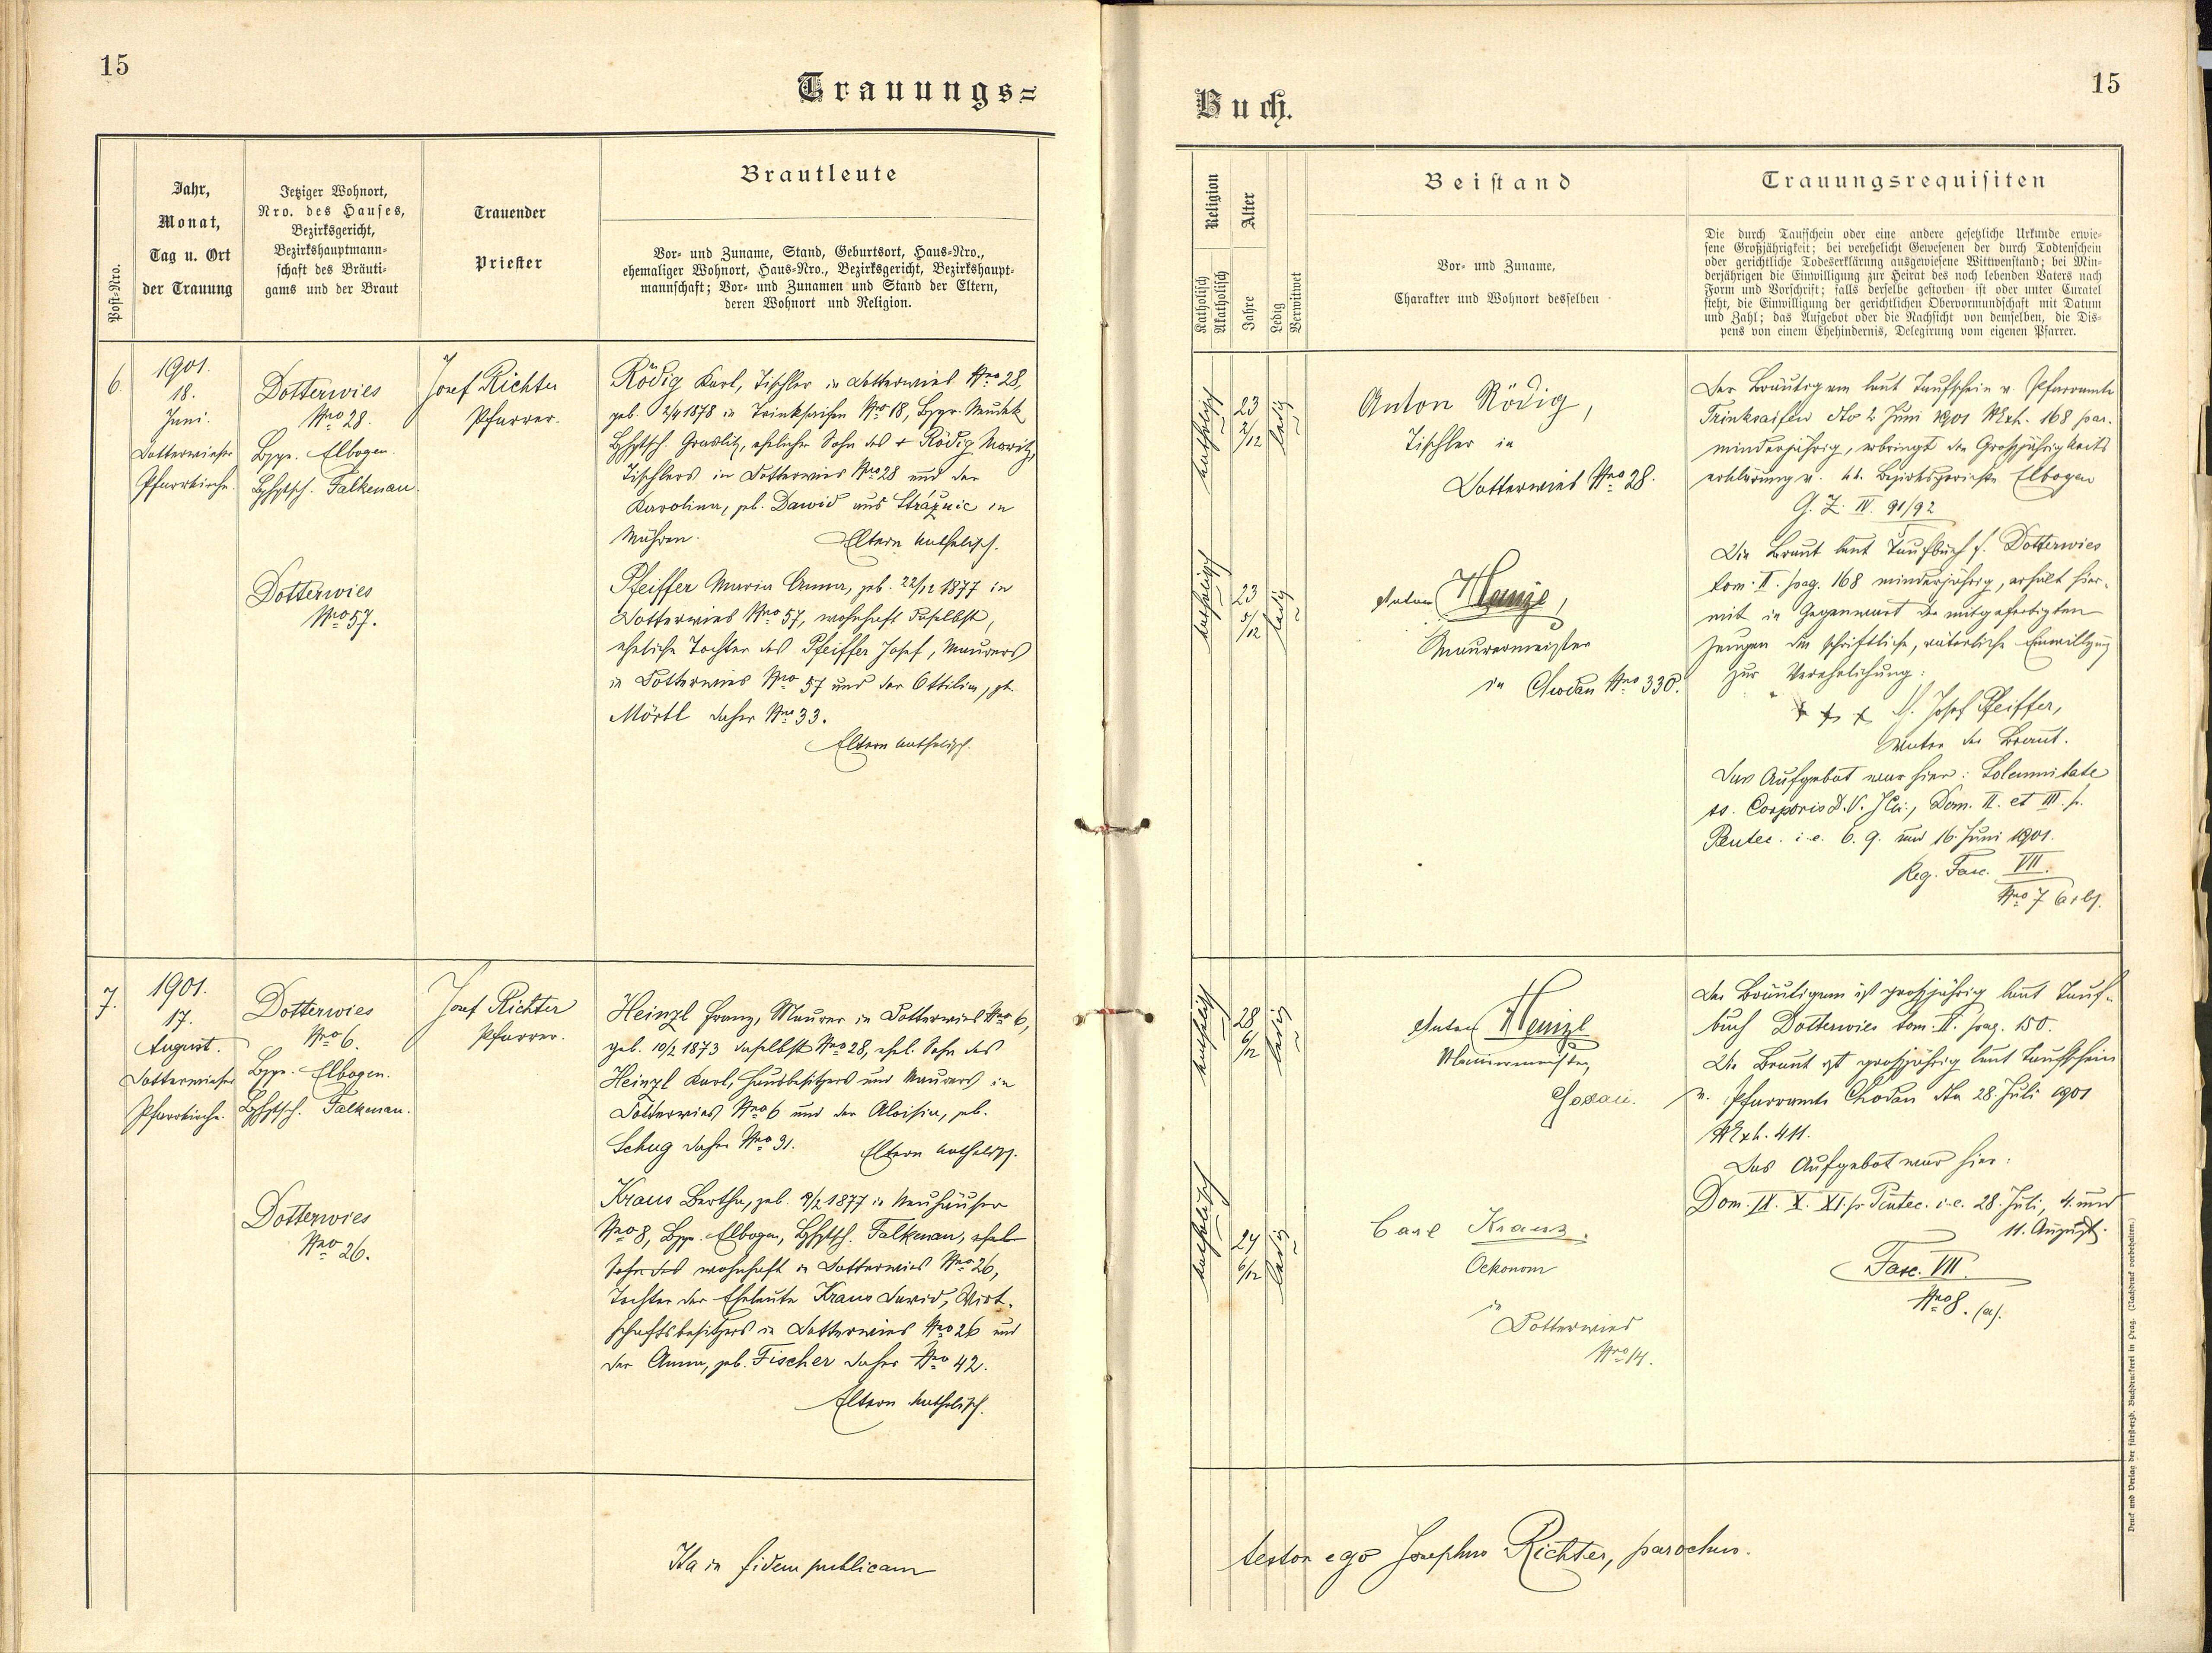 15
Trauungs=
Post-Nro.
Jahr,
Monat,
Tag u. Ort
der Trauung
Jetziger Wohnort,
Nro. des Hauses,
Bezirksgericht,
Bezirkshauptmann-
schaft des Bräuti-
gams und der Braut
Trauender
Priester
Brautleute
Vor- und Zuname, Stand, Geburtsort, Haus-Nro.,
ehemaliger Wohnort, Haus-Nro., Bezirksgericht, Bezirkshaupt-
mannschaft; Vor- und Zunamen und Stand der Eltern,
deren Wohnort und Religion.
6.
1901.
18.
Juni.
Dotterwieser
Pfarrkirche.
Dotterwies
Nro 28.
Bzgr. Elbogen.
Bzhptsch. Falkenau.
Josef Richter
Pfarrer.
Rödig Karl, Tischler in Dotterwies Nro 28,
geb. 2/4 1878 in Trinkseifen Nro 18, Bzgr. Neudek
Bzhptsch. Graslitz, ehelicher Sohn des + Rödig Moritz,
Tischlers in Dotterwies Nro 28 und der
Karolina, geb. David aus Strážnic in
Mähren.
Eltern katholisch.
Dotterwies
Nro 57.
Pfeiffer Maria Anna, geb. 22/12 1877 in
Dotterwies Nro 57, wohnhaft daselbst,
eheliche Tochter des Pfeiffer Josef, Maurers
in Dotterwies Nro 57 und der Ottilia, geb.
Mörtl daher Nro 33.
Eltern katholisch.
7.
1901.
17.
August.
Dotterwieser
Pfarrkirche.
Dotterwies
Nro 6.
Bzgr. Elbogen.
Bzhptsch. Falkenau.
Josef Richter
Pfarrer.
Heinzl Franz, Maurer in Dotterwies Nro 6,
geb. 10/2 1873 daselbst Nro 28, ehel. Sohn des
Heinzl Karl, Hausbesitzers und Maurers in
Dotterwies Nro 6 und der Aloisia, geb.
Schug daher Nro 31.
Eltern katholisch.
Dotterwies
Nro 26.
Kraus Bertha, geb. 9/2 1877 in Neuhäuser
Nro 8, Bzgr. Elbogen, Bzhptsch. Falkenau, ehel
Sohn des wohnhaft in Dotterwies Nro 26,
Tochter der Eheleute Kraus David, Wirt-
schaftsbesitzers in Dotterwies Nro 26 und
der Anna, geb. Fischer daher Nro 42.
Eltern katholisch.
Ita in fidem publicam
Buch.
15
Religion
Katholisch
Akatholisch
Alter
Jahre
Ledig
Verwitwet
Beistand
Vor- und Zuname,
Charakter und Wohnort desselben
Trauungsrequisiten
Die durch Taufschein oder eine andere gesetzliche Urkunde erwie-
sene Großjährigkeit; bei verehelicht Gewesenen der durch Todtenschein
oder gerichtliche Todeserklärung ausgewiesene Wittwenstand; bei Min-
derjährigen die Einwilligung zur Heirat des noch lebenden Vaters nach
Form und Vorschrift; falls derselbe gestorben ist oder unter Curatel
steht, die Einwilligung der gerichtlichen Obervormundschaft mit Datum
und Zahl; das Aufgebot oder die Nachsicht von demselben, die Dis-
pens von einem Ehehindernis, Delegirung vom eigenen Pfarrer.
katholisch
23
2/12
ledig
Anton Rödig,
Tischler in
Dotterwies Nro 28.
katholisch
23
5/12
ledig
Anton
Maurermeister
in Chodau Nro 330.
Der Bräutigam laut Taufschein v. Pfarramte
Trinksaifen dto 2 Juni 1901 NExh. 168 par.
minderjährig, erbringt die Großjährigkeits
erklärung v. kk. Bezirksgerichte Elbogen
G. Z. IV. 91/92
Die Braut laut Taufbuch f. Dotterwies
tom. II. pag. 168 minderjährig, erhält hier-
mit in Gegenwart der mitgefertigten
Zeugen die schriftliche, väterliche Einwilligung
zur Verehelichung:
+ + + Josef Pfeiffer,
Vater der Braut.
Das Aufgebot war hier: Solemnitate
ss. Corporis D. N. JChr., Dom. II. et III. p.
Pentec. i.e. 6. 9. und 16. Juni 1901.
Reg. Fasc. VII.
Nro 7
katholisch
28
6/12
ledig
Anton Heinzl
Maurermeister
Chodau.
katholisch
24
6/12
ledig
Carl Kraus.
Oekonom
in
Dotterwies
Nro 14.
Der Bräutigam ist großjährig laut Tauf-
buch Dotterwies tom. II. pag. 150.
Die Braut ist großjährig laut Taufschein
v. Pfarramte Chodau dto 28. Juli 1901
NExh. 411.
Das Aufgebot war hier:
Dom. IX. X. XI. p. Pentec. i.e. 28. Juli, 4. und
11. August.
Fasc. VII.
Nro 8. (a).
testor ego Josephus Richter, parochus.
Druck und Verlag der fürsterzb. Buchdruckerei in Prag. (Nachdruck vorbehalten.)